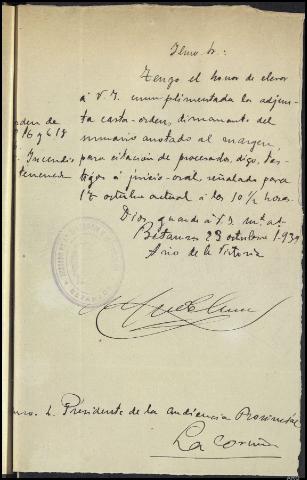 Ilmo Sr:
Tengo el honor de elevar
á V.I. cumplimentada la adjun-
ta carta-orden, dimanante del
sumario anotado al margen,
para citación de procesados, digo, tes-
tigos á juicio oral, señalado para
octubre actual á las 10 1/2 horas.
Dios guarde á V.I. ms. as.
Betanzos 23 octubre 1939
Año de la Victoria
orden de
Incendio
tenencia
BETANZOS
Sr. Presidente de la Audiencia Provincial
La Coruña